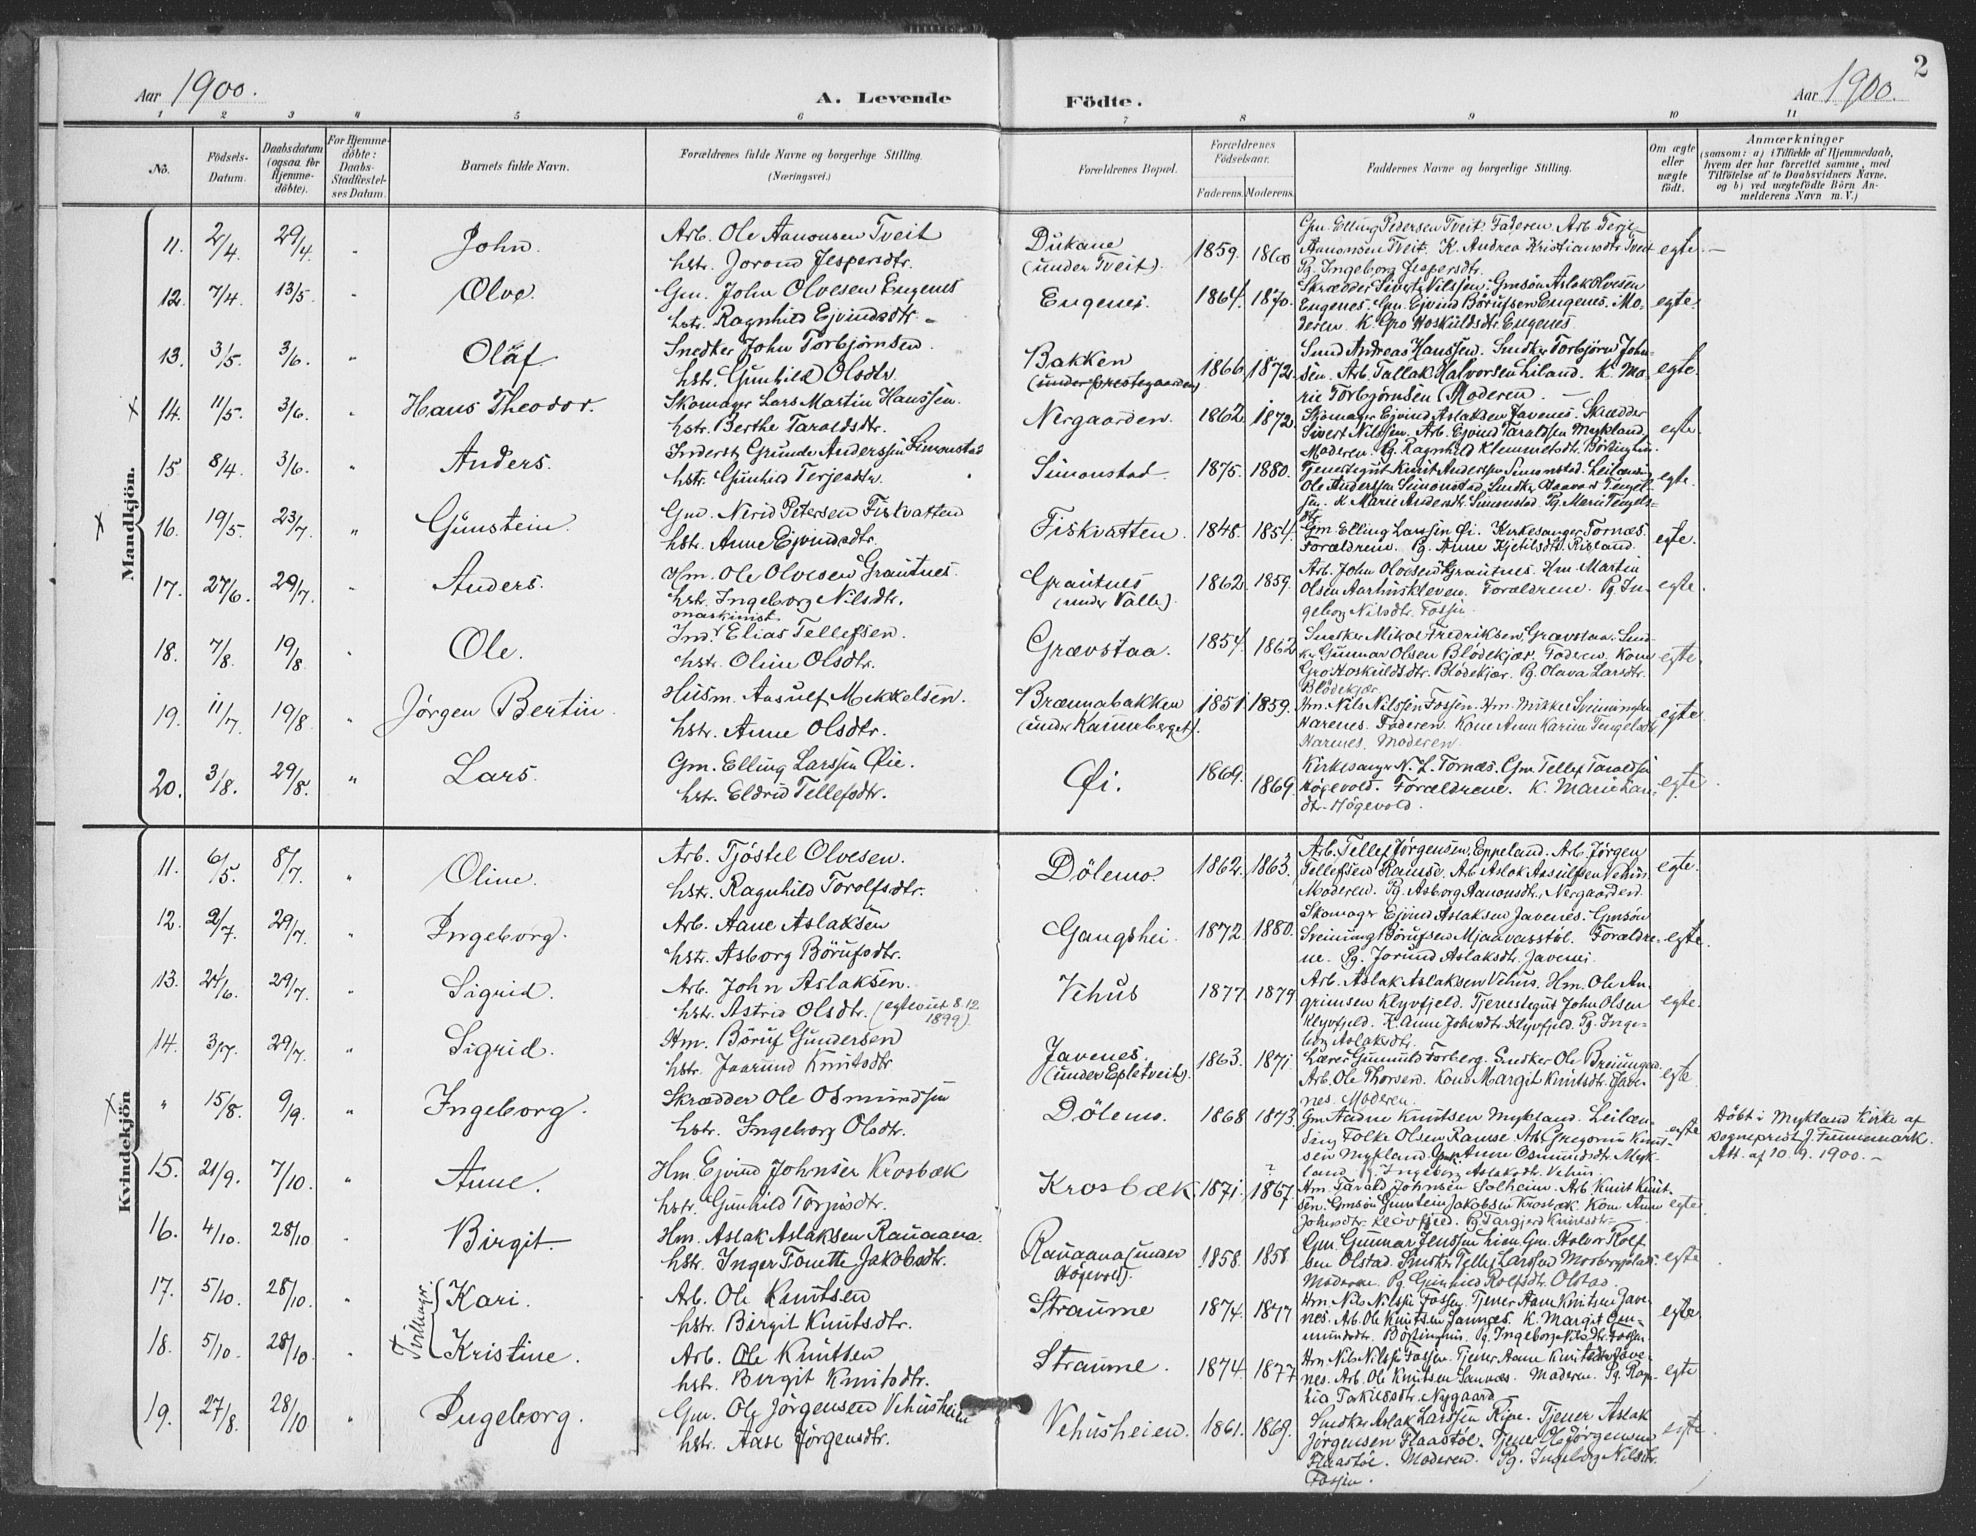 2
Aar 1900.
A. Levende Födte.
Aar 1900.
1 2 3 4 5 6 7 8 9 10 11
No.
Födsels-Datum.
Daabsdatum (ogsaa for Hjemme-döbte).
For Hjemme-döbte: Daabs-Stadfæstel-ses Datum.
Barnets fulde Navn.
Forældrenes fulde Navne og borgerlige Stilling.
(Næringsvei.)
Forældrenes Bopæl.
Forældrenes Födselsaar.
Faderens. Moderens.
Faddernes Navne og borgerlige Stilling.
Om ægte eller uægte födt.
Anmærkninger
(saasom: a) i Tilfælde af Hjemmedaab, hvem der har forrettet samme, med Tilföielse af to Daabsvidners Navne, og b) ved uægtefödte Börn An-melderens Navn m. V.)
Mandkjön.
11. 2/4 29/4. " John. Arb. Ole Aanonsen Tveit
hstr. Jorond Jespersdtr. Dukane (under Tveit). 1859. 1868
Gm. Elling Pedersen Tveit. Faderen. Arb. Terje
Aanonsen Tveit. K. Andrea Kristiansdtr. Tveit
Pg. Ingeborg Jespersdtr. egte.
12. 7/4 13/5. " Olve. Gm. John Olvesen Eugenes
hstr. Ragnhild Ejvindsdtr. Eugenes. 1864. 1870.
Skrædder Sivert Nilssen. Gmsön Aslak Olvesen
Eugenes. Gm. Ejvind Börufsen Eugenes. Mo-
deren. K. Gro Hoskuldsdtr. Eugenes. egte.
13. 3/5. 3/6. " Olaf. Snedker John Torbjørnsen.
hstr. Gunhild Olsdtr. Bakken (under Prestegaarden) 1866. 1872.
Smed Andreas Hanssen. Snedker Torbjörn John-
sen. Arb. Tallak Halvorsen Liland. K. Ma-
rie Torbjørnsen (Moderen. egte.
14. 11/5. 3/6. " Hans Theodor. Skomager Lars Martin Hanssen.
hstr. Berthe Taraldsdtr. Nergaarden. 1862. 1872.
Skomager Ejvind Aslaksen Javenes. Skrædder
Sivert Nilssen. Arb. Ejvind Taraldsen Mykland.
Moderen. Pg. Ragnhild Klemmetsdtr. egte.
15. 8/4. 3/6. " Anders. Inderst Grunde Anderssen Simonstad
hstr. Gunhild Terjesdtr. Simonstad. 1875. 1880.
Tjenestegut Knut Anderssen Simonstad. Leilænding
Ole Anderssen Simonstad. Snedker Haavard Tengel-
sen. K. Marie Andersdtr. Simonstad. Pg. Marie Tengels-
dtr. egte.
16. 19/5. 23/7. " Gunstein. Gm. Nerid Petersen Fiskvatten
hstr. Anne Ejvindsdtr. Fiskvatten. 1848. 1854.
Gm. Elling Larssen Øi. Kirkesanger Tornæs.
Forældrene. Pg. Anne Kjetilsdtr. Risland. egte.
17. 27/6. 29/7. " Anders. Hm. Ole Olvesen Grautnes.
hstr. Ingeborg Nilsdtr. Grautnes (under Valle). 1862. 1859.
Arb. John Olvesen Grautnes. Hm. Martin
Olsen Aarhuskleven. Forældrene. Pg. In-
geborg Nilsdtr. Fossen. egte.
18. 7/8. 19/8. " Ole. maskinist
Ind. Elias Tellefsen.
hstr. Oline Olsdtr. Grævstaa. 1854. 1862
Snedker Mikal Fredriksen, Grævstaa. Sned-
ker Gunnar Olsen Blödekjær. Faderen. Kone
Gro Hoskuldsdtr. Blödekjær. Pg. Olava Larsdtr.
Blödekjær. egte.
19. 11/7. 19/8. " Jörgen Bertin. Husm. Aasulf Mikkelsen.
hstr. Anne Olsdtr. Brænnabakken (under Kannberget). 1851. 1859.
Hm. Nils Nilssen Fossen. Hm. Mikkel Sveinungsen
Harenes. Faderen. Kone Anne Karine Tengelsdtr.
Harenes. Moderen. egte.
20. 3/8. 29/8. " Lars. Gm. Elling Larssen Øie.
hstr. Eldrid Tellefsdtr. Øi. 1869. 1869.
Kirkesanger N. L. Tornæs. Gm. Tellef Taraldsen
Högevold. Forældrene. K. Marie
dtr. Högevold. egte.
Kvindekjön
11. 6/5. 8/7. " Oline. Arb. Tjöstel Olvesen.
hstr. Ragnhild Torolfsdtr. Dölemo. 1862. 1863.
Arb. Tellef Jörgensen Eppeland. Arb. Jörgen
Tellefsen Ramse. Arb. Aslak Aasulfsen Vehus.
Moderen. Pg. Asborg Aanonsdtr. Nergaarden. egte.
12. 2/7. 29/7. " Ingeborg. Arb. Aane Aslaksen
hstr. Asborg Börufsdtr. Gangshei. 1872. 1880.
Skomager Ejvind Aslaksen Javenes. Gmsön
Sveinung Börufsen Mjaavasstöl. Forældre-
ne. Pg. Jorund Aslaksdtr. Javenes. egte.
13. 24/6. 29/7. " Sigrid. Arb. John Aslaksen.
hstr. Astrid Olsdtr. (egteviet 8.12 1899). Vehus 1877. 1879.
Arb. Aslak Aslaksen Vehus. Hm. Ole An-
grimsen Klyvfjeld. Tjenestegut John Olsen
Klyvfjeld. K. Anne Johnsdtr. Klyvfjeld. Pg. Inge-
borg Aslaksdtr. egte.
14. 3/7. 29/7. " Sigrid. Hm. Böruf Gundersen
hstr. Jaarund Knutsdtr. Javenes. (under Epletveit). 1863. 1871.
Lærer Gunnuld Forberg. Snedker Ole Breiungen
Arb. Ole Thorsen. Kone Margit Knutsdtr. Jave-
nes. Moderen. egte
" 15/8. 9/9. " Ingeborg. Skrædder Ole Osmundsen
hstr. Ingeborg Olsdtr. Dölemo. 1868 1873.
Gm. Aadne Knutsen Mykland. Leilæn-
ding Folke Olsen Ramse. Arb. Gregorius Knut-
sen Mykland. Anne Osmundsdtr. Myk-
land. Pg. Ingeborg Aslaksdtr. Vehus. egte
Döbt i Mykland Kirke af
Sogneprest J. Finnemark.
Att. af 10. 9. 1900. -
15. 21/9. 7/10. " Anne. Hm. Ejvind Johnsen Krosbæk
hstr. Gunhild Torjusdtr. Krosbæk 1871. ? 1867.
Hm. Tarald Johnsen Solheim. Arb. Knut Knut-
sen. Gmsön Gunstein Jakobsen Krosbæk. Kone Anne
Johnsdtr. Klövfjeld. Pg. Targjerd Knutsdtr. egte.
16. 4/10. 28/10 " Birgit. Hm. Aslak Aslaksen Rauaana.
hstr. Inger Tonette Jakobsdtr. Rauaana (under Högevold). 1858. 1858
Gm. Gunnar Jenssen Lien. Gm. Halvor Rolf-
sen Olstad. Snedker Tellef Larssen
Moderen. Pg. Gunhild Rolfsdtr. Olstad. egte
Tvillinger:
17. 5/10. 28/10. " Kari. Arb. Ole Knutsen
hstr. Birgit Knutsdtr. Straume 1874. 1877
Hm. Nils Nilssen Fossen. Tjener Aane Knutsen Jave-
nes. Arb. Ole Knutsen Sannæs. K. Margit Gun-
mundsdtr. Pg. Ingeborg Nilsdtr. Fossen. egte
18. 5/10. 28/10. " Kristine. Arb. Ole Knutsen
hstr. Birgit Knutsdtr. Straume. 1874. 1877
Hm. Nils Nilssen Fossen. Tjener Aane Knutsen Jave-
nes. Arb. Ole Knutsen Sannæs. Moderen. Pg.
Nygaard. egte
19. 27/8. 28/10 " Ingeborg. Gm. Ole Jörgensen Vehusheien
hstr. Aase Jörgensdtr. Vehusheien. 1861. 1869.
Snedker Aslak Larssen Ripe. Tjener Aslak
Jörgensen Flaastöl. Tjener Ole Jörgensen
Flaastöl. Moderen. Pg. Ingeborg Nilsdtr.
Fossen. egte.